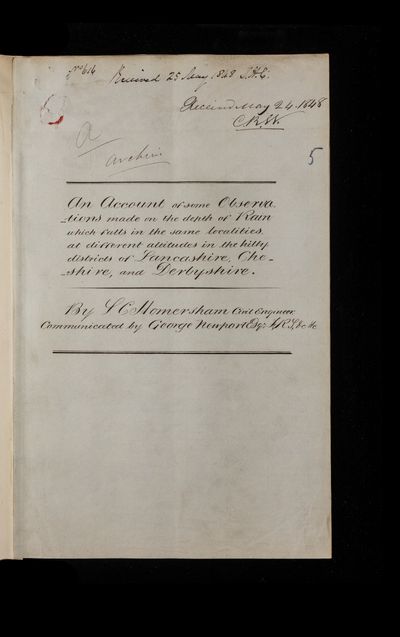 No 614
Received 25 May 1848 S.H.C.
Received May 24. 1848
C.R.W.
5
A
archives
An Account of some Observa
-tions made on the depth of Rain
which falls in the same localities,
at different altitudes in the hilly
districts of Lancashire, Che-
-shire, and Derbyshire.
By S C Homersham Civil Engineer
Communicated by George Newport Esqr. F.R.S, &c &c